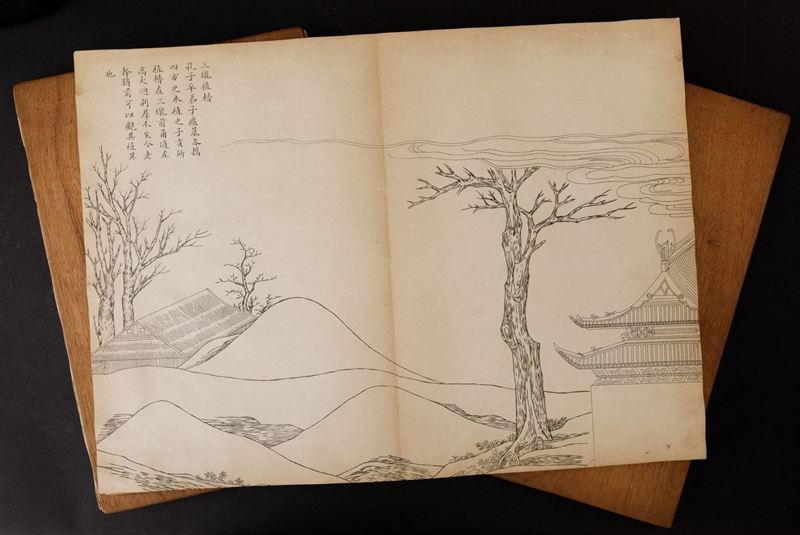 三壠植楷
孔子卒弟子廬墓各携
四方之木植之子貢所
植楷在三壠前甬道左
高大迥別羣木至今老
幹猶可以觀其植
也